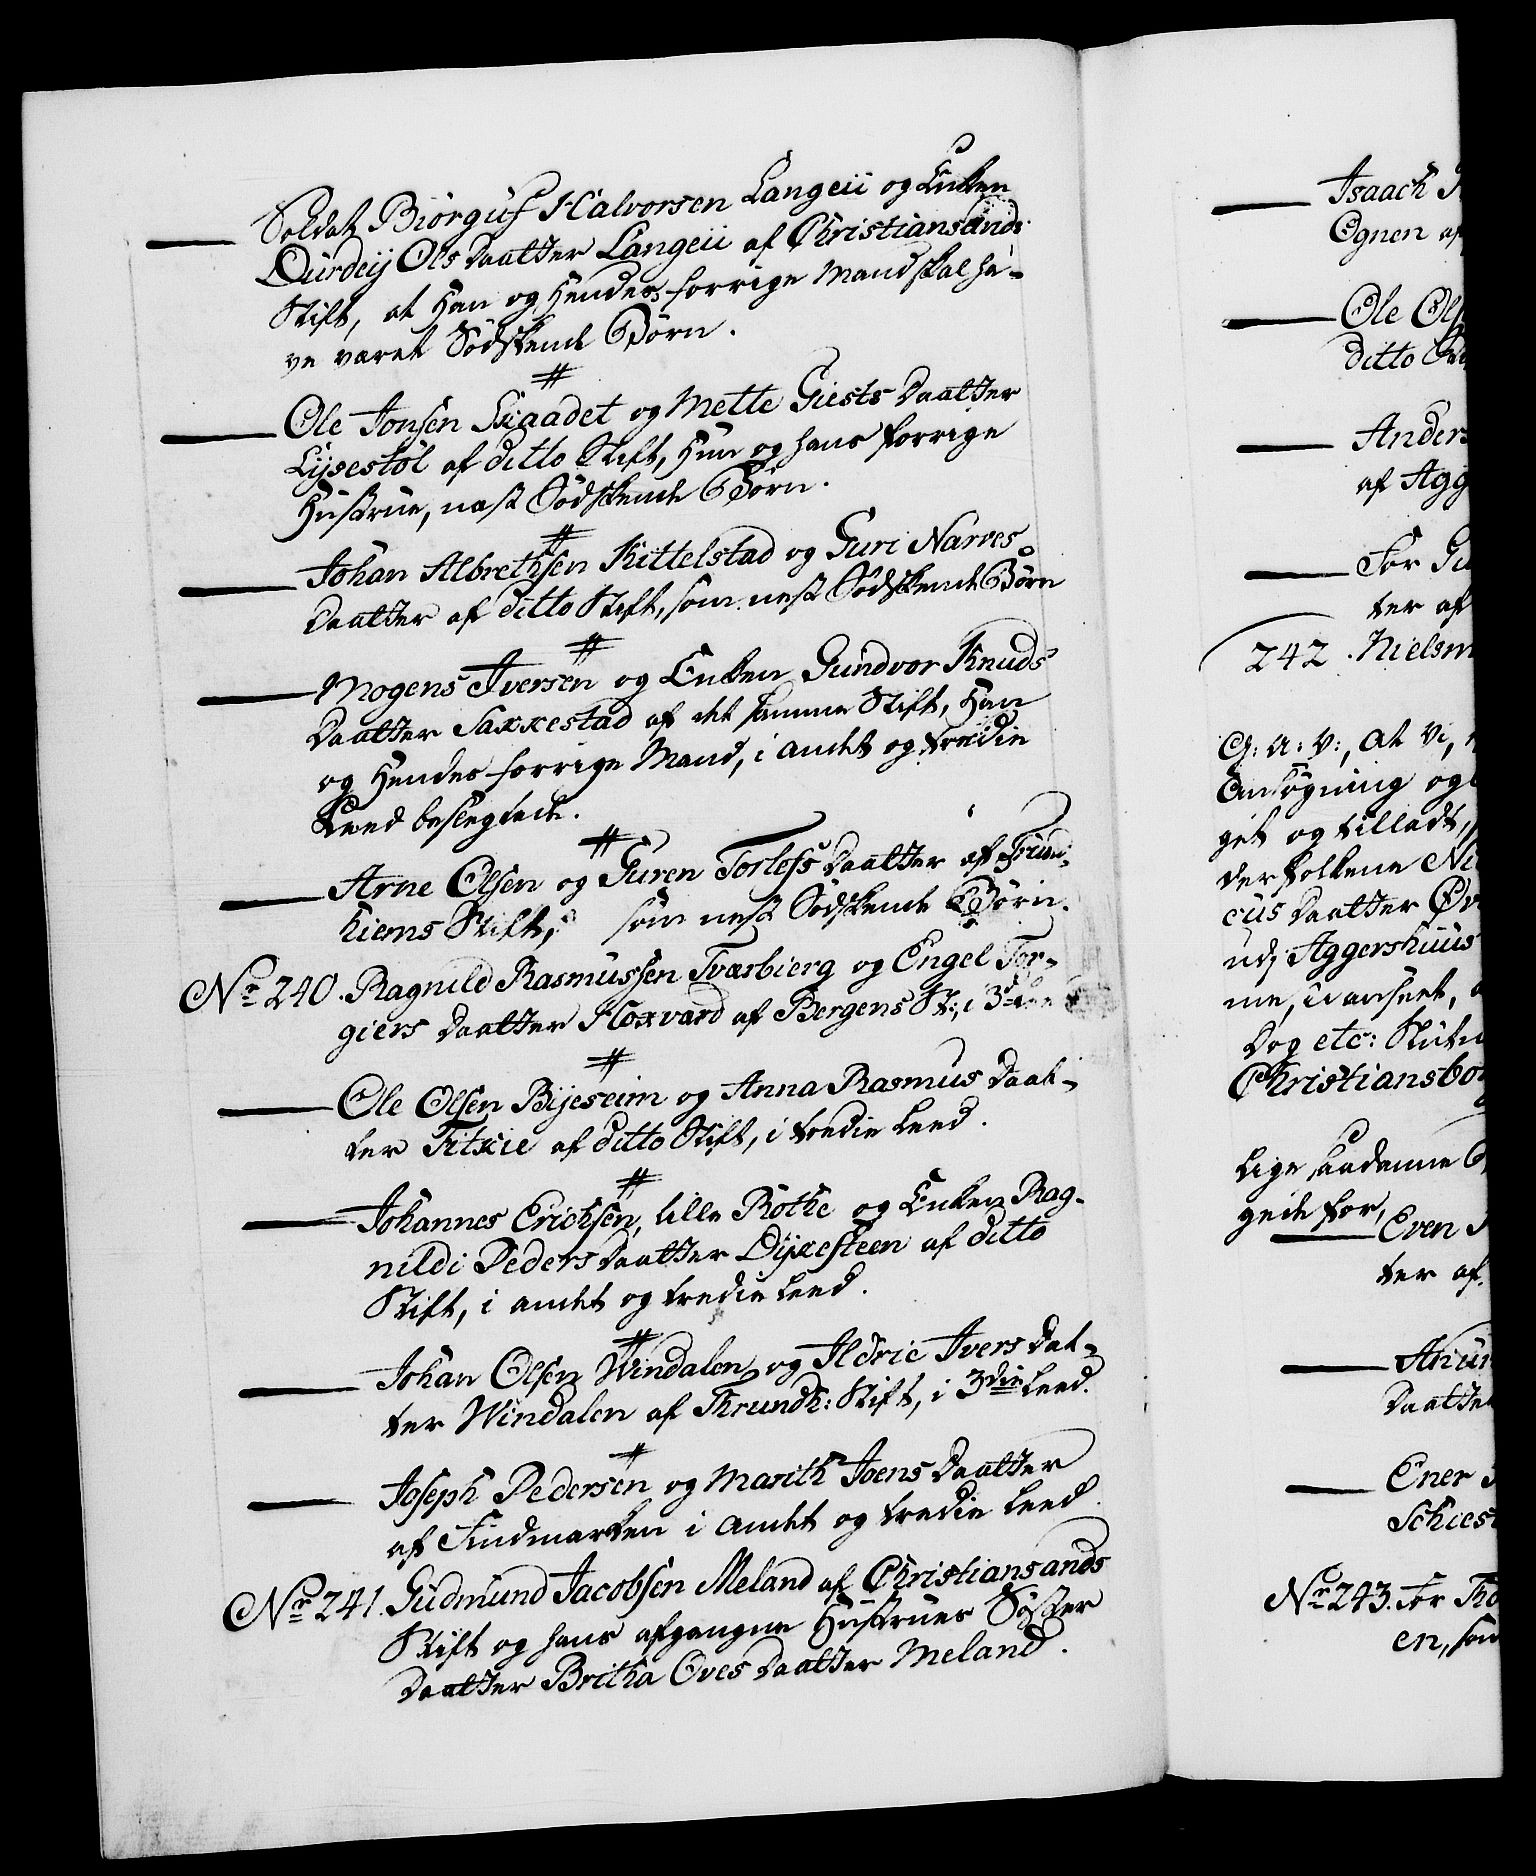 — Soldat Biörguf Halvorsen Langeii og Enken
Durdeij Ols Daatter Langeii af Christiansands
Stift, at Han og Hendes forrige Mand skal ha-
ve været Södskende Börn.
#
— Ole Jonsen Skaadet og Mette Giests Daatter
Lijsestöl af ditto Stift, Hun og hans forrige
Hustrue, nest Södskende Börn.
#
— Johan Albrethsen Kittelstad og Guri Narves
Daatter af ditto Stift, som nest Södskende Börn
#
— Mogens Iversen og Enken Gundvor Knuds
Daatter Saxxestad af det samme Stift, Han
og Hendes forrige Mand, i andet og tredie
Leed beslegtede.
#
— Arne Olsen og Guren Torlefs Daatter af Trund-
hiems Stift, som nest Södskende Börn.
No 240. Ragnild Rasmussen Tværbierg og Engel Tor-
giers Daatter Hoxvard af Bergens St:, i 3die
#
— Ole Olsen Bijeseim og Anna Rasmus Daat-
ter Titxie af ditto Stift, i tredie Leed.
#
— Johannes Erichsen, lille Röthe og Enken Rag-
nildi Peders Daatter Dijxesteen af ditto
Stift, i andet og tredie Leed.
#
— Johan Olsen Windalen og Ildrie Ivers Dat-
ter Windalen af Thrundh: Stift, i 3die Leed.
#
— Joseph Pedersen og Marith Joens Daatter
af Findmarken i andet og tredie Leed.
No 241. Gudmund Jacobsen Meland af Christiansands
Stift og hans afgangne Hustrues Söster
Daatter Britha Oves Daatter Meland.
— Isaach
Egnen af
— Ole Ols
ditto
— Anders
af Agg
— Tor Gu
ter af
242. Niels
G: A: V:, At Vi,
Ansögning og
get og tilladt,
der folkene Ni
cus Daatter
udj Aggershuus
me, u-anseet,
Dog etc:
Christiansbor
Lige saadanne
gede for,
— Even
ter af
— Anun
Daatter
— Ener
Schies
No 243. Tor Tho
en, som